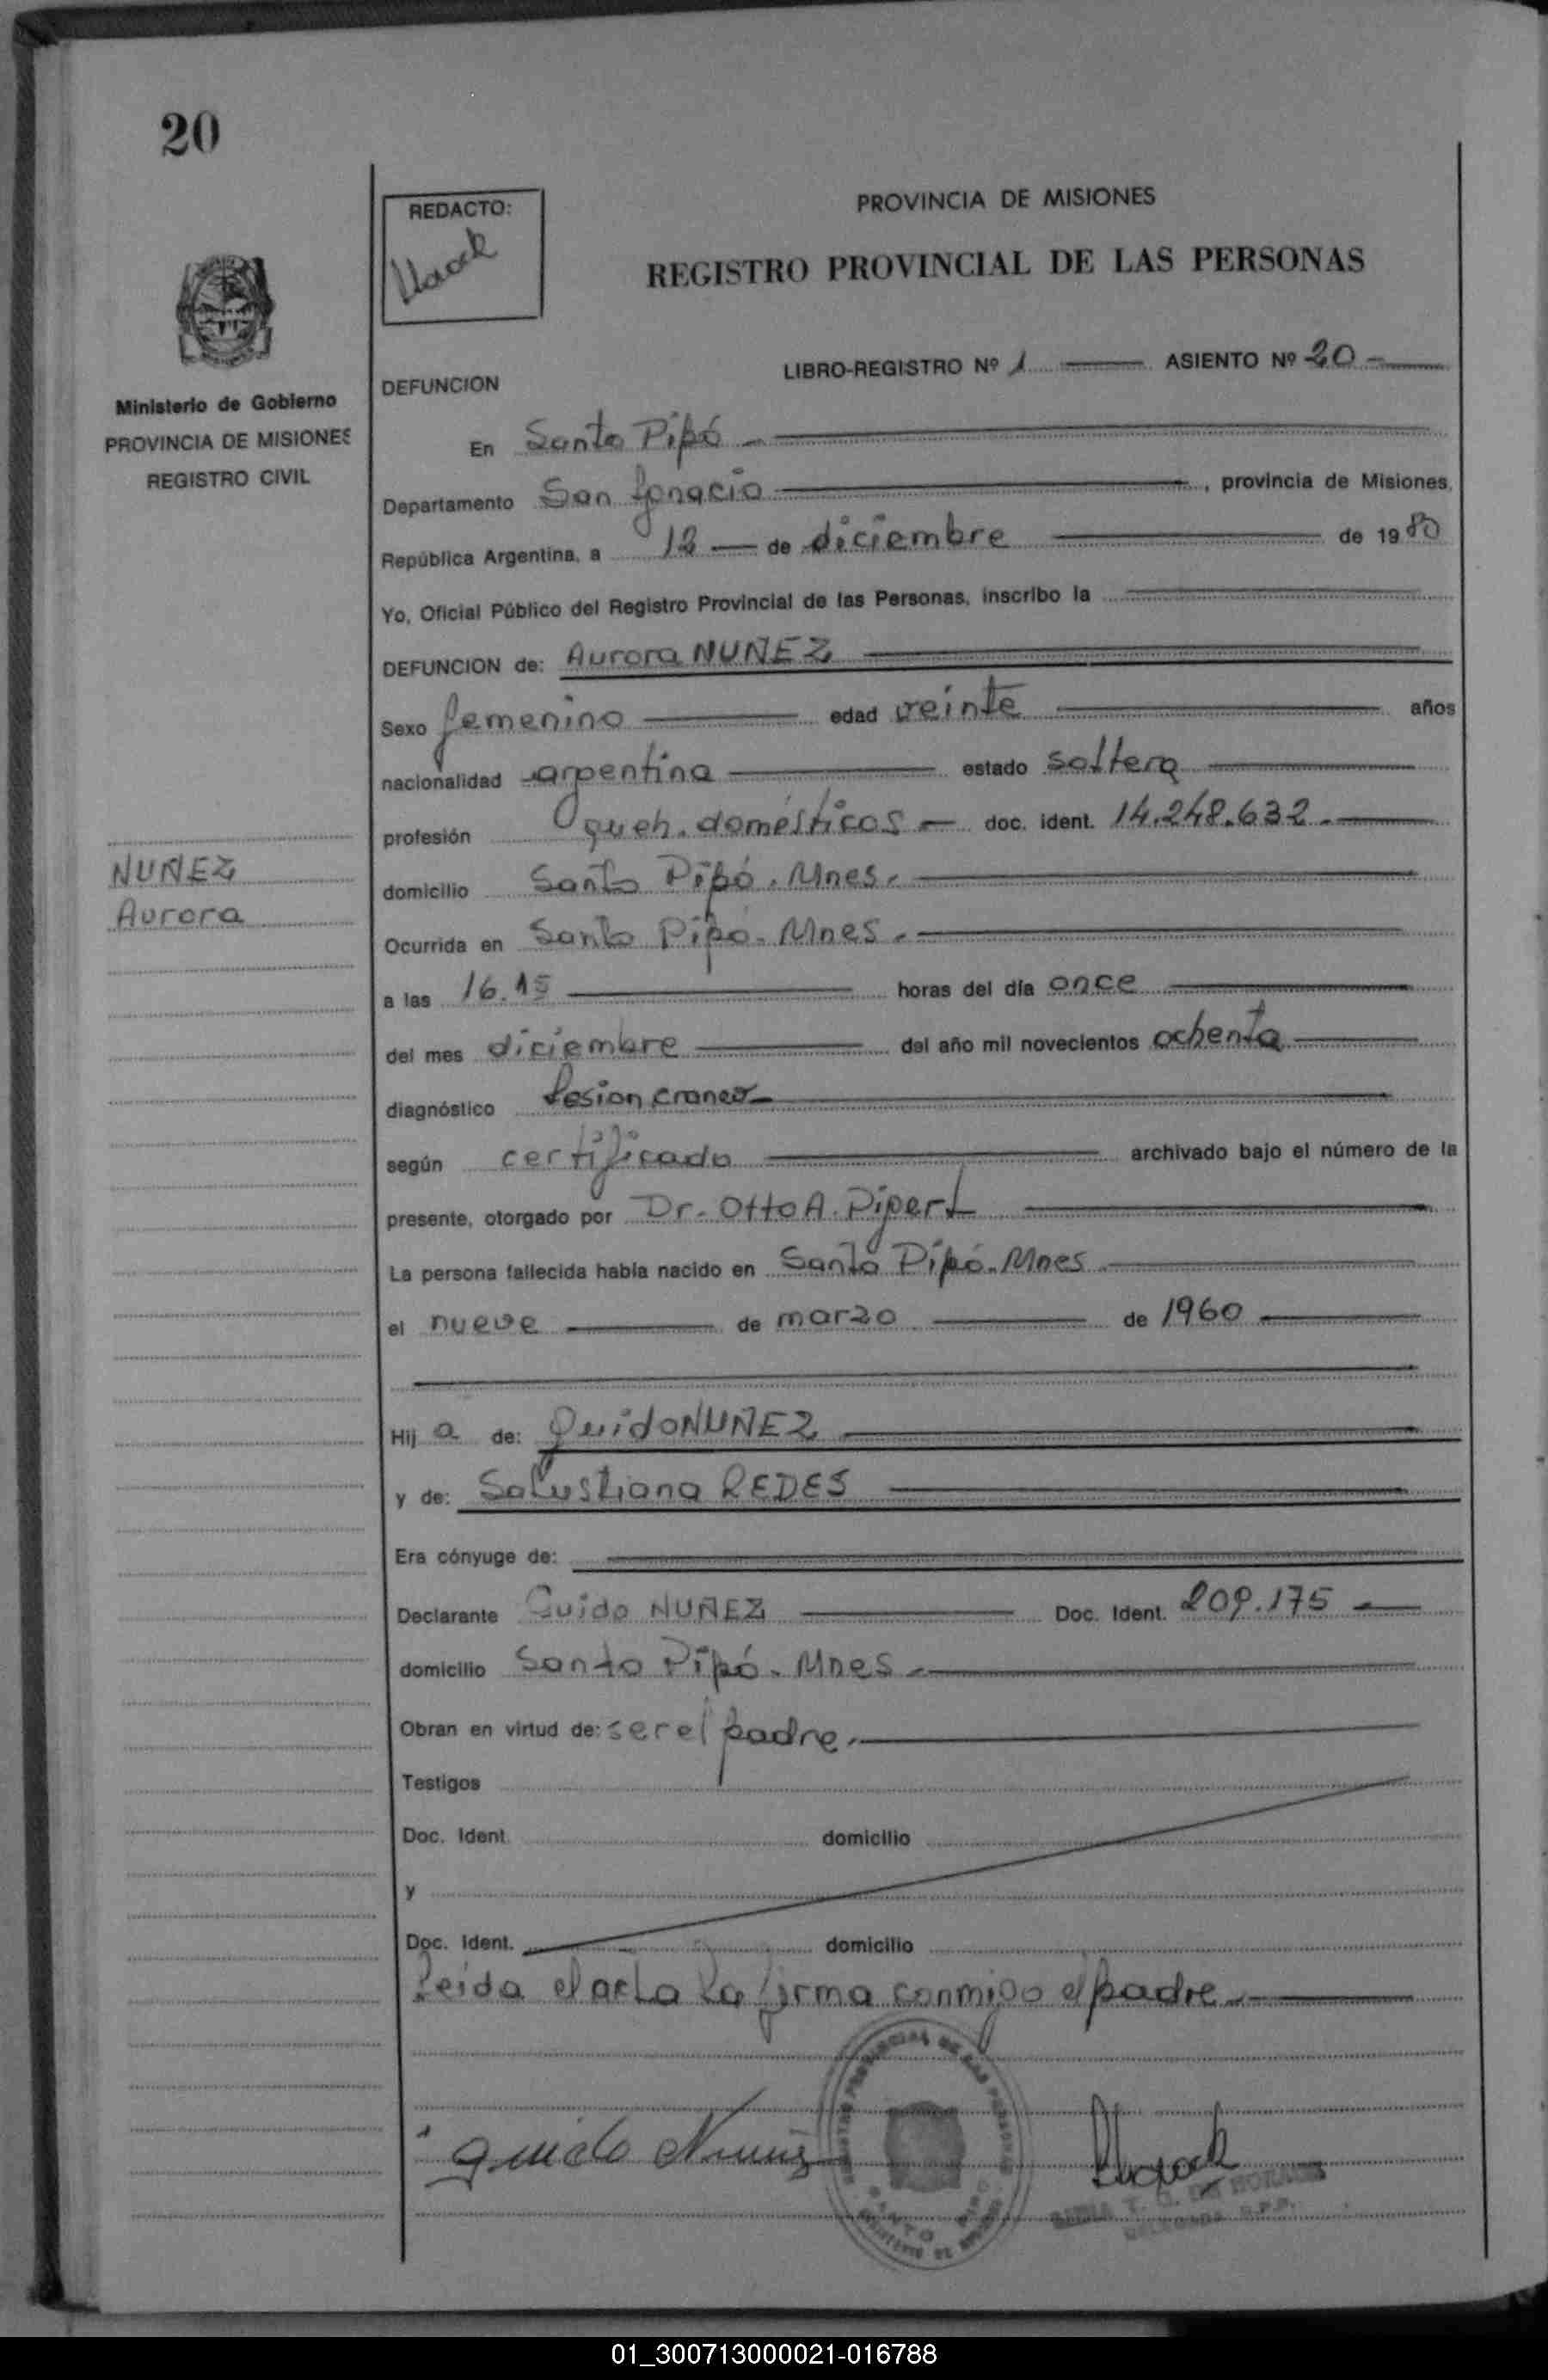 20
REDACTO:
PROVINCIA DE MISIONES
REGISTRO PROVINCIAL DE LAS PERSONAS
Ministerio de Gobierno
PROVINCIA DE MISIONES
REGISTRO CIVIL
DEFUNCION
LIBRO-REGISTRO Nº 1 ASIENTO Nº 20 -
En Santo Pipó -
Departamento San Ignacio , provincia de Misiones,
República Argentina, a 12 de diciembre de 1980
Yo, Oficial Público del Registro Provincial de las Personas, inscribo la
DEFUNCION de: Aurora NUÑEZ
Sexo femenino edad veinte años
nacionalidad argentina estado soltera
profesión queh. domésticos - doc. ident. 14.248.632.
NUÑEZ
Aurora
domicilio Santo Pipó. Mnes.
Ocurrida en Santo Pipó. Mnes.
a las 16.15 horas del día once
del mes diciembre del año mil novecientos ochenta
diagnóstico lesion craneo
según certificado archivado bajo el número de la
presente, otorgado por Dr. Otto A. Pipert
La persona fallecida había nacido en Santo Pipó. Mnes
el nueve de marzo de 1960
Hij a de: Guido NUÑEZ
y de: Salustiana REDES
Era cónyuge de:
Declarante Guido NUÑEZ Doc. Ident. 209.175
domicilio Santo Pipó. Mnes.
Obran en virtud de: ser el padre.
Testigos
Doc. Ident. domicilio
y
Doc. Ident. domicilio
Leida el acta la firma conmigo el padre.
Guido Nuñez
01_300713000021-016788